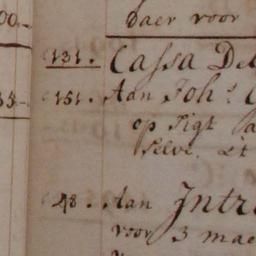 00.
baer voor
131. Cassa De
35.- 151. Aan Joh.s
op Sigt
selve. Et
48. Aan Intr
voor 3 mae